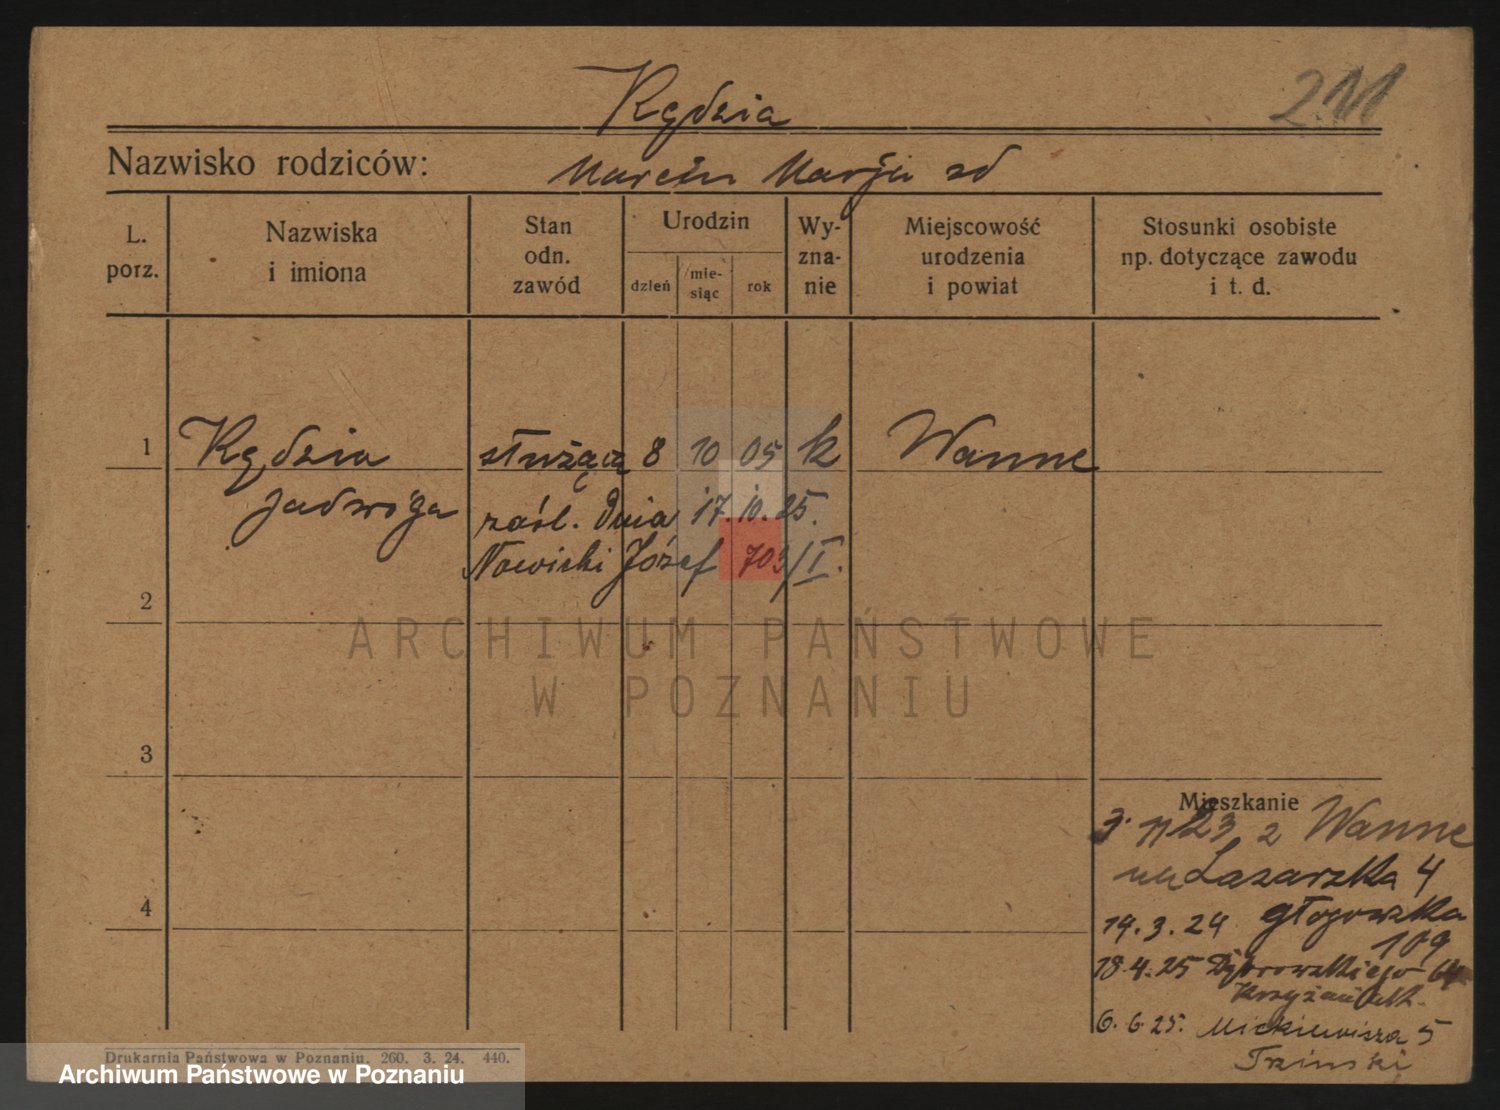 Kędzia
211
Nazwisko rodziców: Marcin Marja zd
L. porz.
Nazwiska i imiona
Stan odn. zawód
Urodzin
dzień
mie-siąc
rok
Wy-zna-nie
Miejscowość urodzenia i powiat
Stosunki osobiste np. dotyczące zawodu i t. d.
1 Kędzia służąca 8 10 05 k Wanne
Jadwiga zaśl. dnia 17. 10. 25.
Nowicki Józef 703/I.
2
ARCHIWUM PAŃSTWOWE
W POZNANIU
3
Mieszkanie
3. 11 23 z Wanne
na Łazarzka 4
4
19. 3. 24 Głogowska
109
18. 4. 25 Dąbrowskiego 64
6. 6. 25. Mickiewicza 5
Drukarnia Państwowa w Poznaniu. 260. 3. 24. 440.
Archiwum Państwowe w Poznaniu